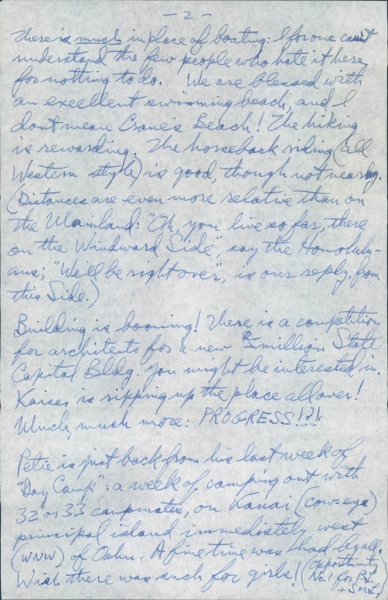 — 2 —
There is much in place of boating: I for one can't
understand the few people who hate it here
for nothing to do. We are blessed with
an excellent swimming beach, and I
dont mean Crane's Beach! The hiking
is rewarding. The horseback riding (all
Western style) is good, though not nearby.
(Distances are even more relative than on
the Mainland: "Oh, you live so far, there
on the Windward Side", say the Honolulu-
ans; "We'll be right over", is our reply, from
this Side.)
Building is booming! There is a competition
for architects for a new million State
Capitol Bldg. you might be interested in.
Kaiser is ripping up the place all over!
Much, much more: PROGRESS!?!
Petie is just back from his last week of
"Day Camp": a week of camping out with
32 or 33 campmates, on Kauai (
principal island immediately west
(WNW) of Oahu. A fine time was had by all.
Wish there was such for girls! (Opportunity
No. 1 for